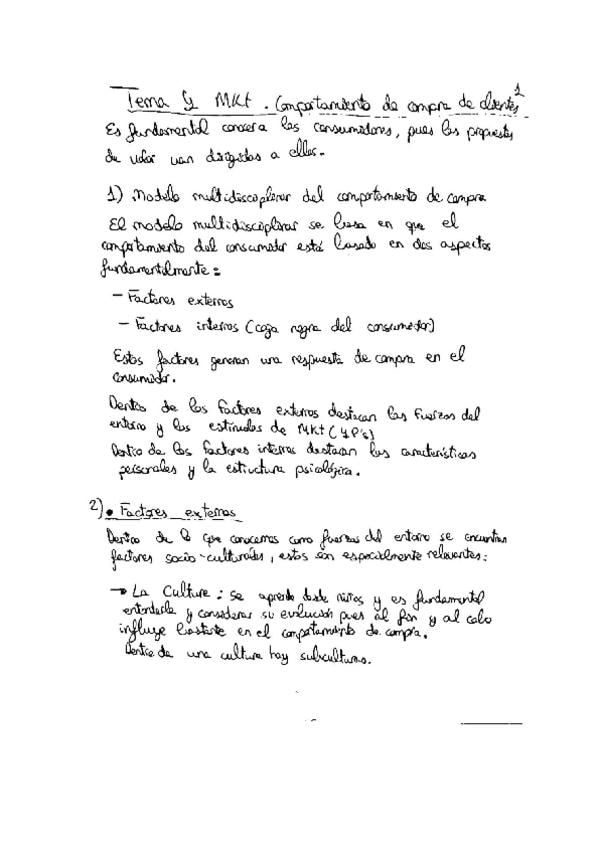 1
Tema 4 MKt. Comportamiento de compra de clientes
Es fundamental conocer a los consumidores, pues las propuestas
de valor van dirigidas a ellos.
1) Modelo multidisciplinar del comportamiento de compra
El modelo multidisciplinar se basa en que el
comportamiento del consumidor está basado en dos aspectos
fundamentalmente:
- Factores externos
- Factores internos (caja negra del consumidor)
Estos factores generan una respuesta de compra en el
consumidor.
Dentro de los factores externos destacan las fuerzas del
entorno y los estímulos de MKt (4P's)
Dentro de los factores internos destacan las características
personales y la estructura psicológica.
2) • Factores externos
Dentro de lo que conocemos como fuerzas del entorno se encuentran
factores socio-culturales, estos son especialmente relevantes:
→ La Cultura: se aprende desde niños y es fundamental
entenderla y considerar su evolución pues al fin y al cabo
influye bastante en el comportamiento de compra.
Dentro de una cultura hay subculturas.